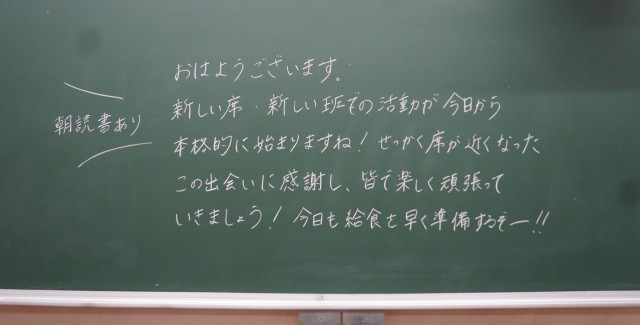 朝読書あり
おはようございます。
新しい席・新しい班での活動が今日から
本格的に始まりますね！せっかく席が近くなった
この出会いに感謝し、皆で楽しく頑張って
いきましょう！今日も給食を早く準備するぞー!!